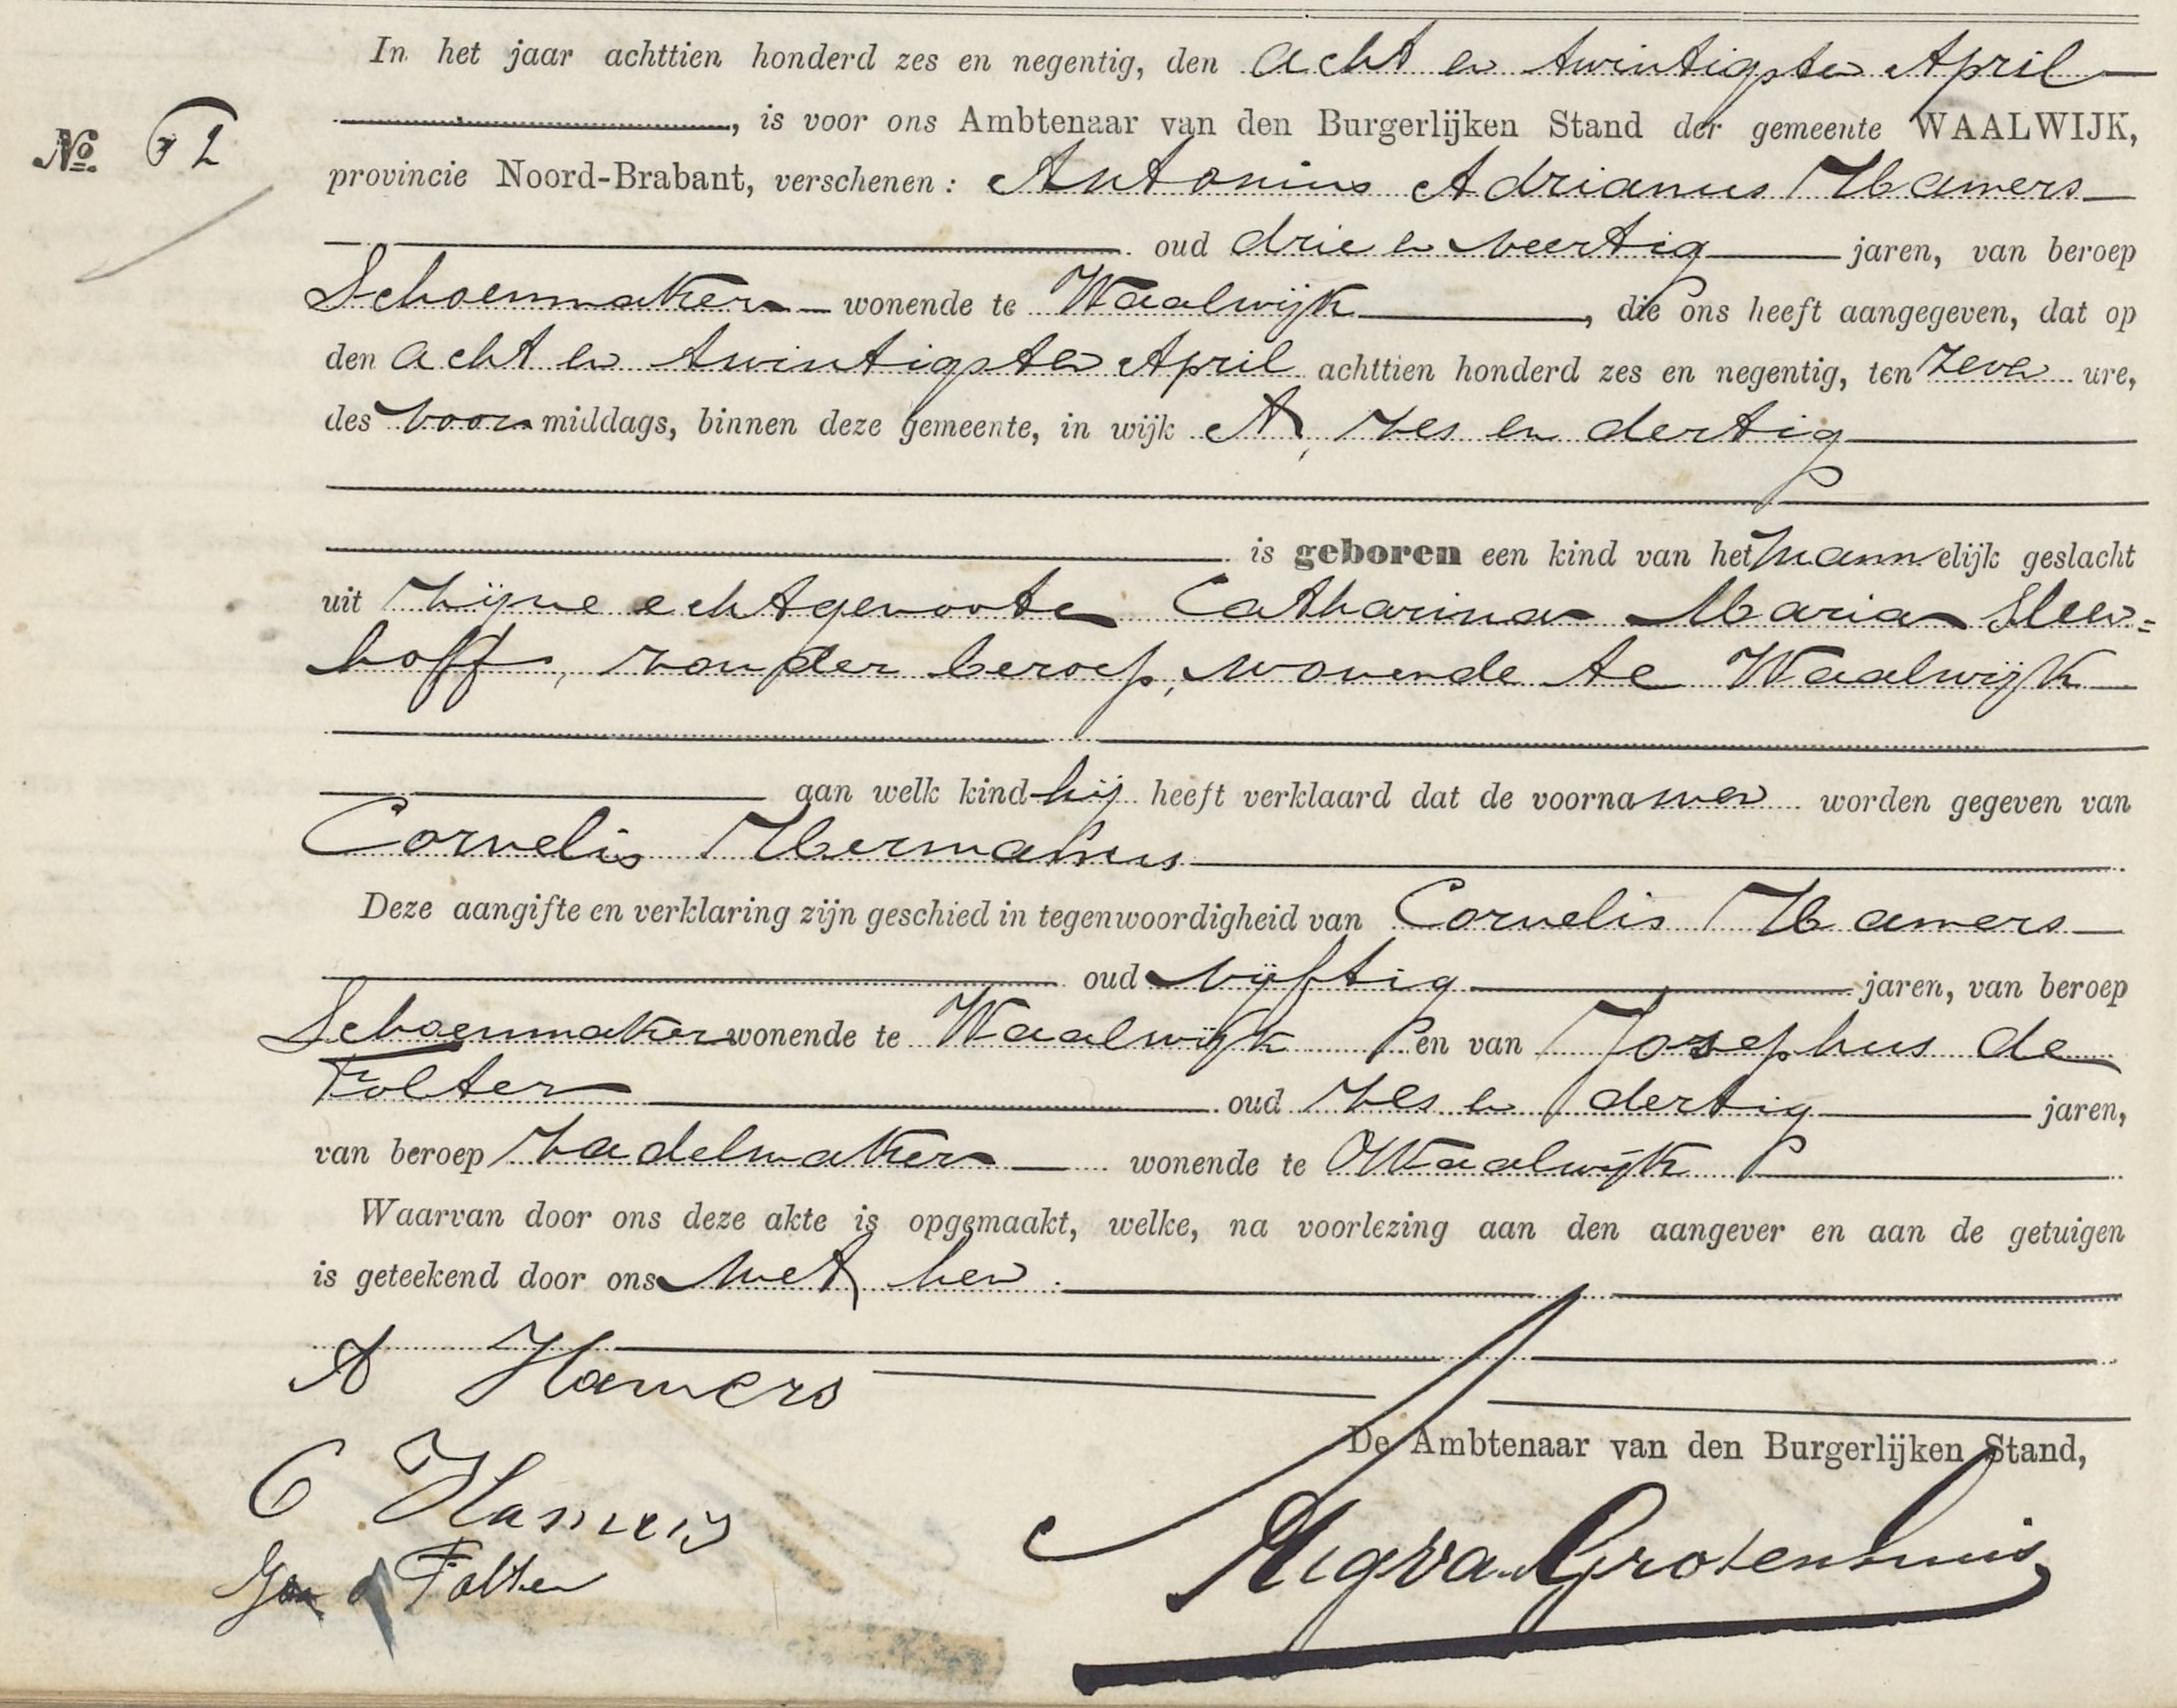 In het jaar achttien honderd zes en negentig, den acht en twintigsten April
, is voor ons Ambtenaar van den Burgerlijken Stand der gemeente WAALWIJK,
No. 52
provincie Noord-Brabant, verschenen: Antonius Adrianus Hamers
oud drie en veertig jaren, van beroep
Schoenmaker wonende te Waalwijk, die ons heeft aangegeven, dat op
den acht en twintigsten April achttien honderd zes en negentig, ten zeven ure,
des voormiddags, binnen deze gemeente, in wijk A, zes en dertig
is geboren een kind van het mannelijk geslacht
uit zijne echtgenoote Catharina Maria Slew=
hoff, zonder beroep, wonende te Waalwijk
aan welk kind hij heeft verklaard dat de voornamen worden gegeven van
Cornelis Hermanus
Deze aangifte en verklaring zijn geschied in tegenwoordigheid van Cornelis Hamers
oud vijftig jaren, van beroep
Schoenmaker wonende te Waalwijk en van Josephus de
Folter oud zes en dertig jaren,
van beroep zadelmaker wonende te Waalwijk
Waarvan door ons deze akte is opgemaakt, welke, na voorlezing aan den aangever en aan de getuigen
is geteekend door ons met hen.
A Hamers
De Ambtenaar van den Burgerlijken Stand,
C Hamers
d Folter
Grotenhuis